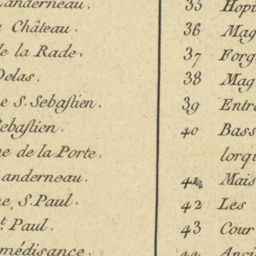 anderneau.
e Château.
de la Rade.
Delas.
e S. Sebastien.
ebastien.
ne de la Porte.
anderneau.
ue, S. Paul.
t Paul.
médisance.
35 Hopi
36 Mag
37 Forg
38 Mag
39 Entre
40 Bass
lorqu
41 Mais
42 Les
43 Cour